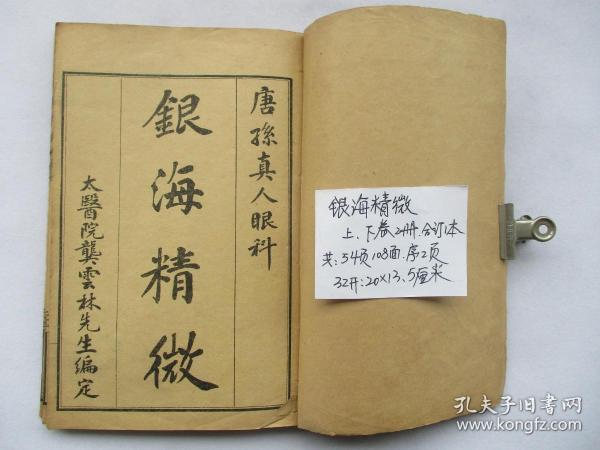 唐孫真人眼科
銀海精微
太醫院龔雲林先生編定
銀海精微
上、下卷2册.合订本
共:54页108面.序2页
32开:20×13.5厘米
孔夫子旧书网
www.kongfz.com